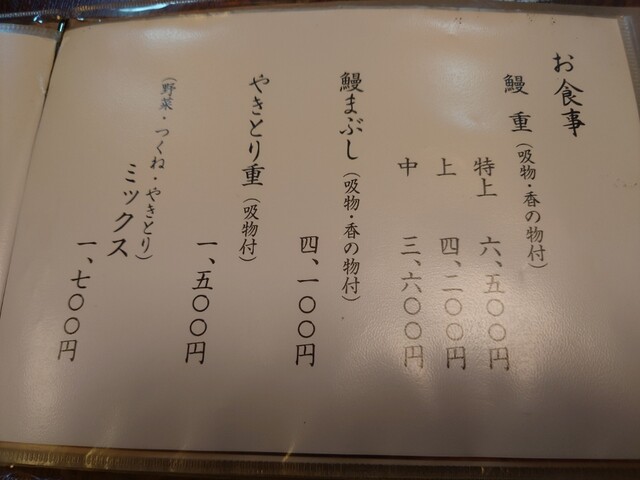 お食事
鰻重(吸物・香の物付)
特上 六、五〇〇円
上 四、二〇〇円
中 三、六〇〇円
鰻まぶし(吸物・香の物付)
四、一〇〇円
やきとり重(吸物付)
一、五〇〇円
(野菜・つくね・やきとり)
ミックス
一、七〇〇円